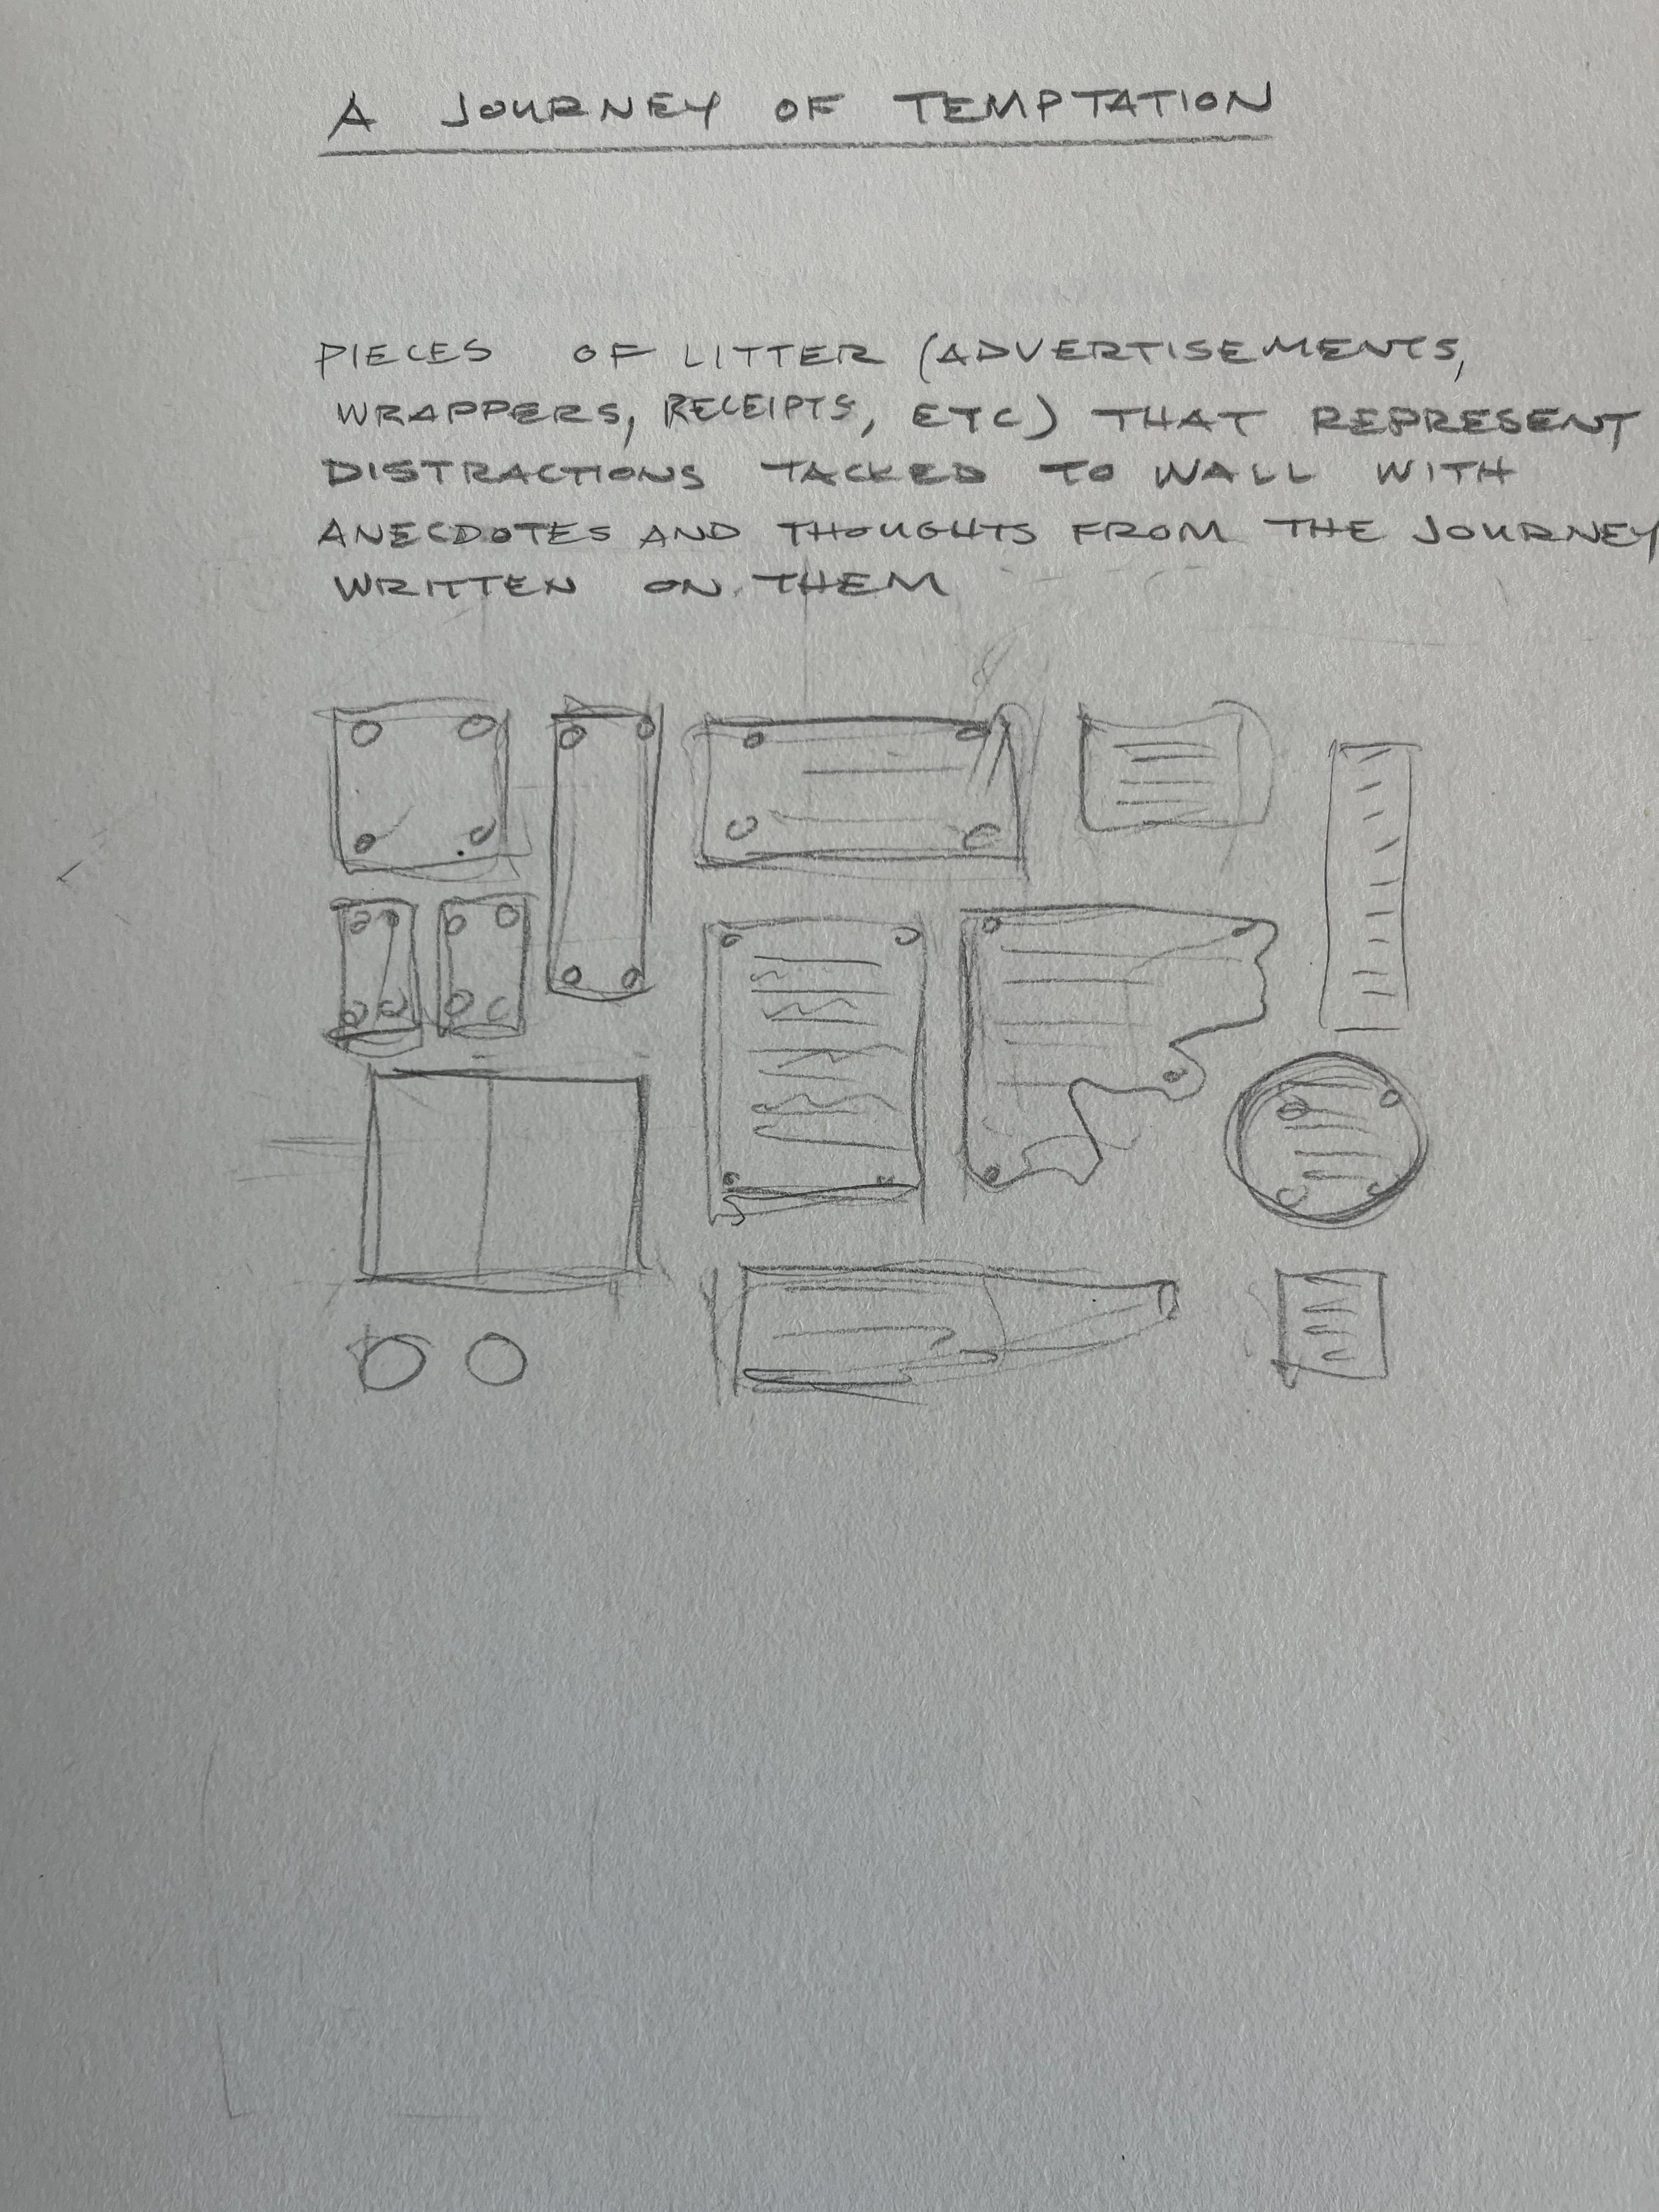 A JOURNEY OF TEMPTATION
PIECES OF LITTER (ADVERTISEMENTS,
WRAPPERS, RECEIPTS, ETC) THAT REPRESENT
DISTRACTIONS TACKED TO WALL WITH
ANECDOTES AND THOUGHTS FROM THE JOURNEY
WRITTEN ON THEM